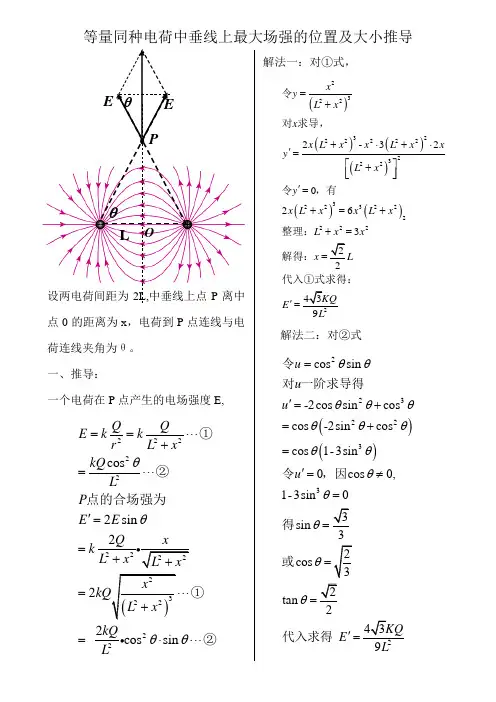 等量同种电荷中垂线上最大场强的位置及大小推导
E θ E
P
θ
L O
设两电荷间距为 2L,中垂线上点 P 离中
点 O 的距离为 x，电荷到 P 点连线与电
荷连线夹角为 θ。
一、推导：
一个电荷在 P 点产生的电场强度 E,
E = k Q/r² = k Q/(L² + x²) ⋯①
= kQcos²θ/L² ⋯②
P点的合场强为
E′ = 2E sinθ
= k 2Q/(L² + x²) • x/√(L² + x²)
= 2kQ √(x²/(L² + x²)³) ⋯①
= 2kQ/L² • cos²θ · sinθ ⋯②
解法一：对①式，
令y = x²/(L² + x²)³
对x求导，
y′ = [2x(L² + x²)³ - x² · 3(L² + x²)² · 2x]/[(L² + x²)³]²
令y′ = 0，有
2x(L² + x²)³ = 6x³(L² + x²)₂
整理：L² + x² = 3x²
解得：x = √2/2 L
代入①式求得：
E′ = 4√3KQ/9L²
解法二：对②式
令u = cos²θ sinθ
对u一阶求导得
u′ = -2cosθ sin²θ + cos³θ
= cosθ(-2sin²θ + cos²θ)
= cosθ(1-3sin³θ)
令u′ = 0，因cosθ ≠ 0,
1-3sin³θ = 0
得sinθ = √3/3
或cosθ = √(2/3)
tanθ = √2/2
代入求得 E′ = 4√3KQ/9L²